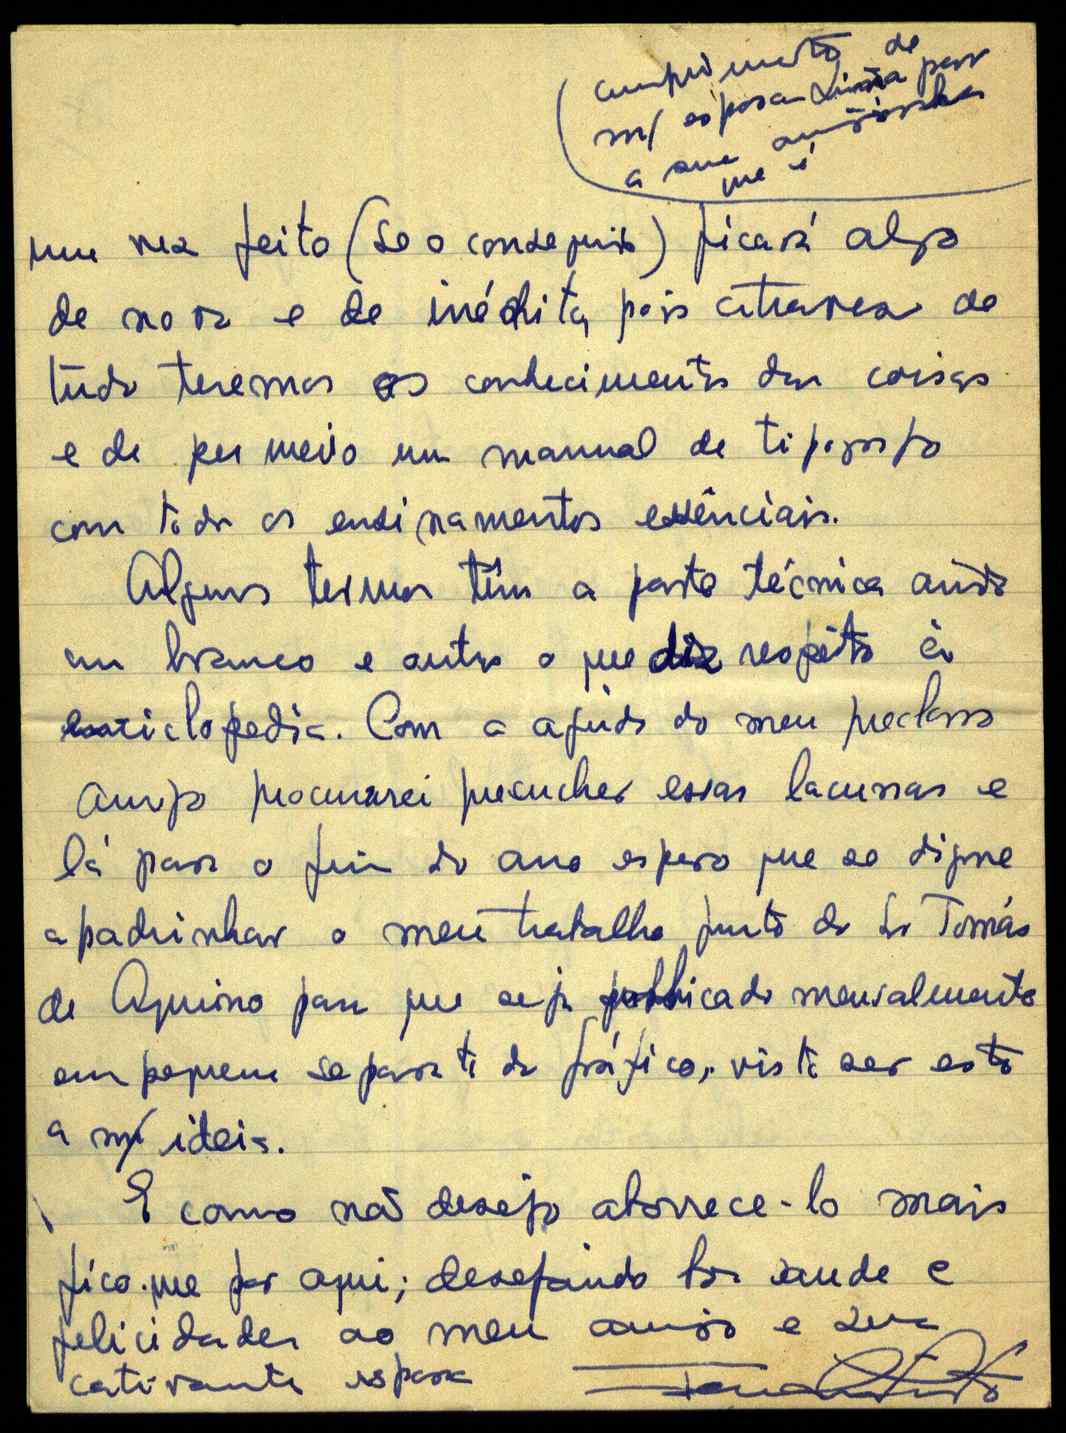 cumprimento de
m/ esposa Luisa para
a sua
que é
uma vez feito (se o conseguir) ficará algo
de novo e de inédito, pois atravez de
tudo teremos os conhecimentos das coisas
e de per meio um manual de tipografo
com todos os ensinamentos essênciais.
Alguns termos têm a parte técnica ainda
em branco e outros o que diz respeito à
enciclopedia. Com a ajuda do meu preclaro
amigo procurarei preencher essas lacunas e
lá para o fim do ano espero que se digne
apadrinhar o meu trabalho junto do Sr Tomás
de Aquino para que seja publicado mensalmente
em pequena separata do gráfico, visto ser esta
a m/ ideia.
E como não desejo aborrece-lo mais
fico-me por aqui; desejando boa saude e
felicidades ao meu amigo e sua
cativante esposa